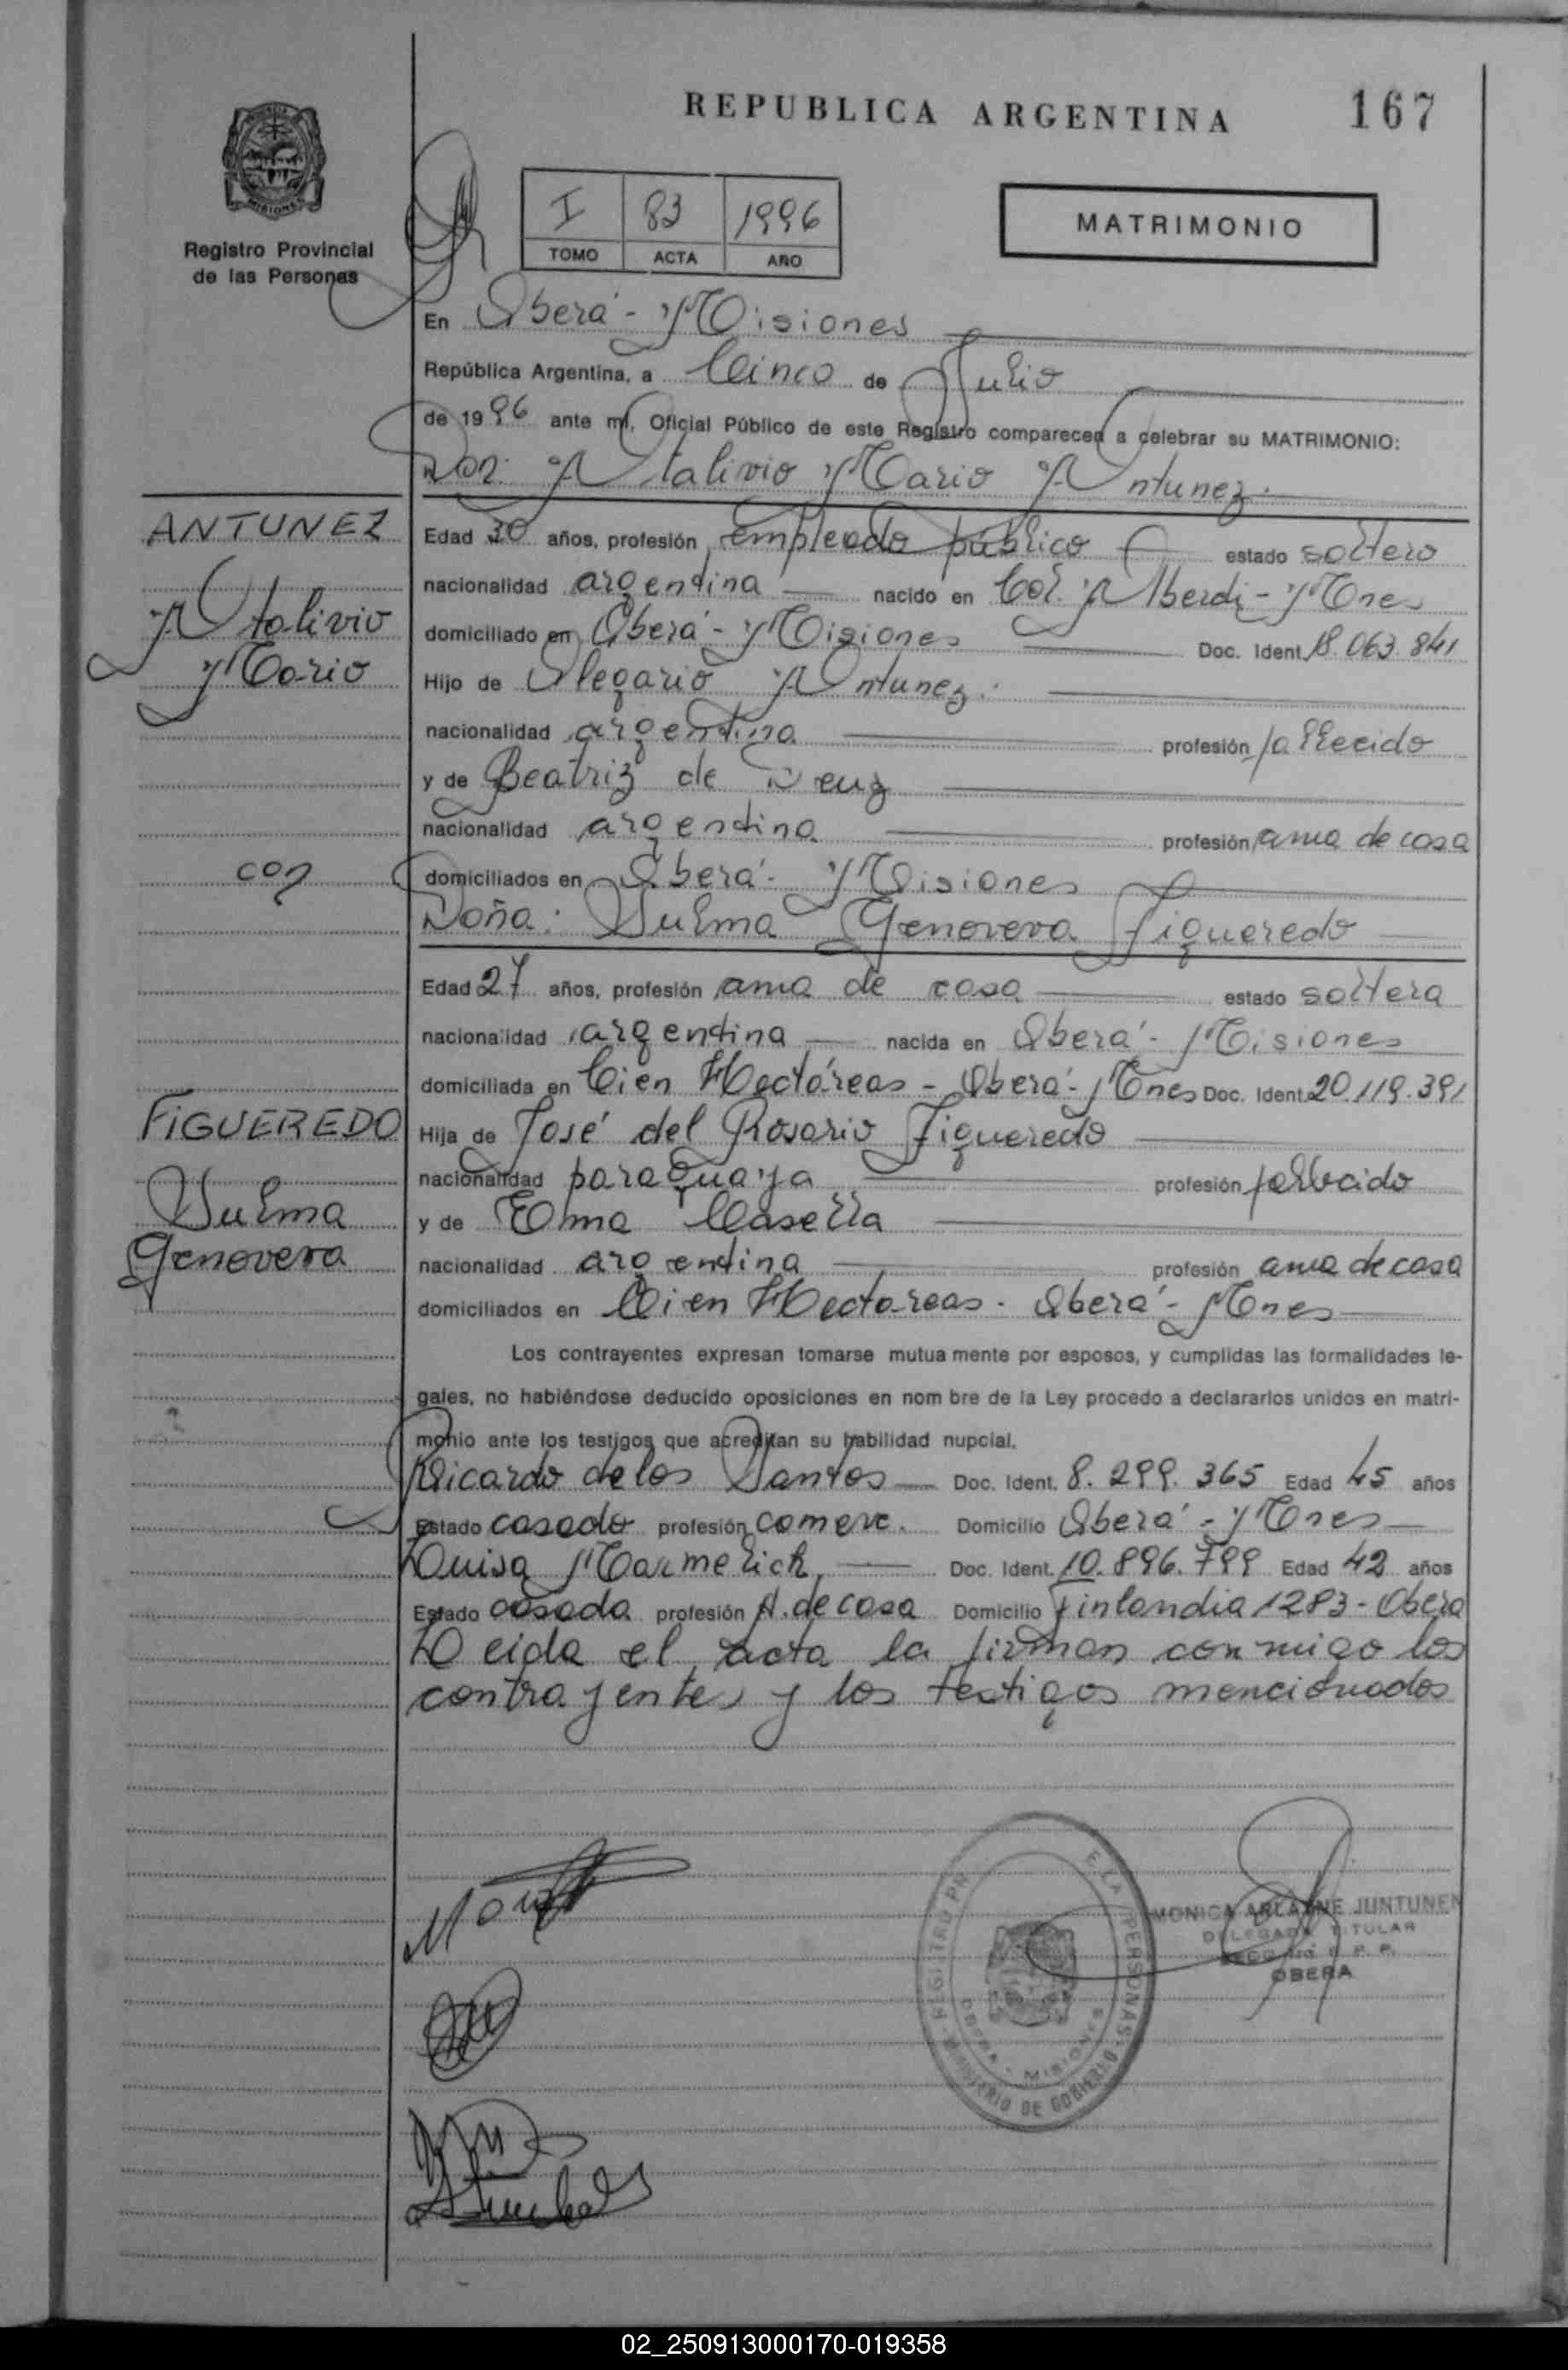 REPUBLICA ARGENTINA 167
MISIONES
Registro Provincial
de las Personas
I 83 1996
TOMO ACTA AÑO
MATRIMONIO
En Oberá - Misiones
República Argentina, a Cinco de Julio
de 1996 ante mí, Oficial Público de este Registro comparecen a celebrar su MATRIMONIO:
Don: Atalivio Mario Antunez.
ANTUNEZ
Atalivio
Mario
Edad 30 años, profesión empleado público estado soltero
nacionalidad argentina nacido en Col. Alberdi - Mnes
domiciliado en Oberá - Misiones Doc. Ident. 18.063.841
Hijo de Olegario Antunez.
nacionalidad argentina profesión fallecido
y de Beatriz de
nacionalidad argentina profesión ama de casa
con
domiciliados en Oberá - Misiones
Doña: Sulma Genoveva Figueredo
Edad 27 años, profesión ama de casa estado soltera
nacionalidad argentina nacida en Oberá - Misiones
domiciliada en Cien Hectáreas - Oberá - Mnes Doc. Ident. 20.119.391
FIGUEREDO
Sulma
Genoveva
Hija de José del Rosario Figueredo
nacionalidad paraguaya profesión fallecido
y de Elma Casella
nacionalidad argentina profesión ama de casa
domiciliados en Cien Hectareas - Oberá - Mnes
Los contrayentes expresan tomarse mutua mente por esposos, y cumplidas las formalidades le-
gales, no habiéndose deducido oposiciones en nom bre de la Ley procedo a declararlos unidos en matri-
monio ante los testigos que acreditan su habilidad nupcial.
Ricardo de los Santos Doc. Ident. 8.299.365 Edad 45 años
Estado casado profesión comerc. Domicilio Oberá - Mnes
Luisa Marmelich, Doc. Ident. 10.896.799 Edad 42 años
Estado casada profesión A. de casa Domicilio Finlandia 1283 - Oberá
Leida el acta la firman conmigo los
contrayentes y los testigos mencionados
MONICA ARLAINE JUNTUNEN
DELEGADA TITULAR
OBERA
OBERA - MISIONES
MINISTERIO DE GOBIERNO
02_250913000170-019358